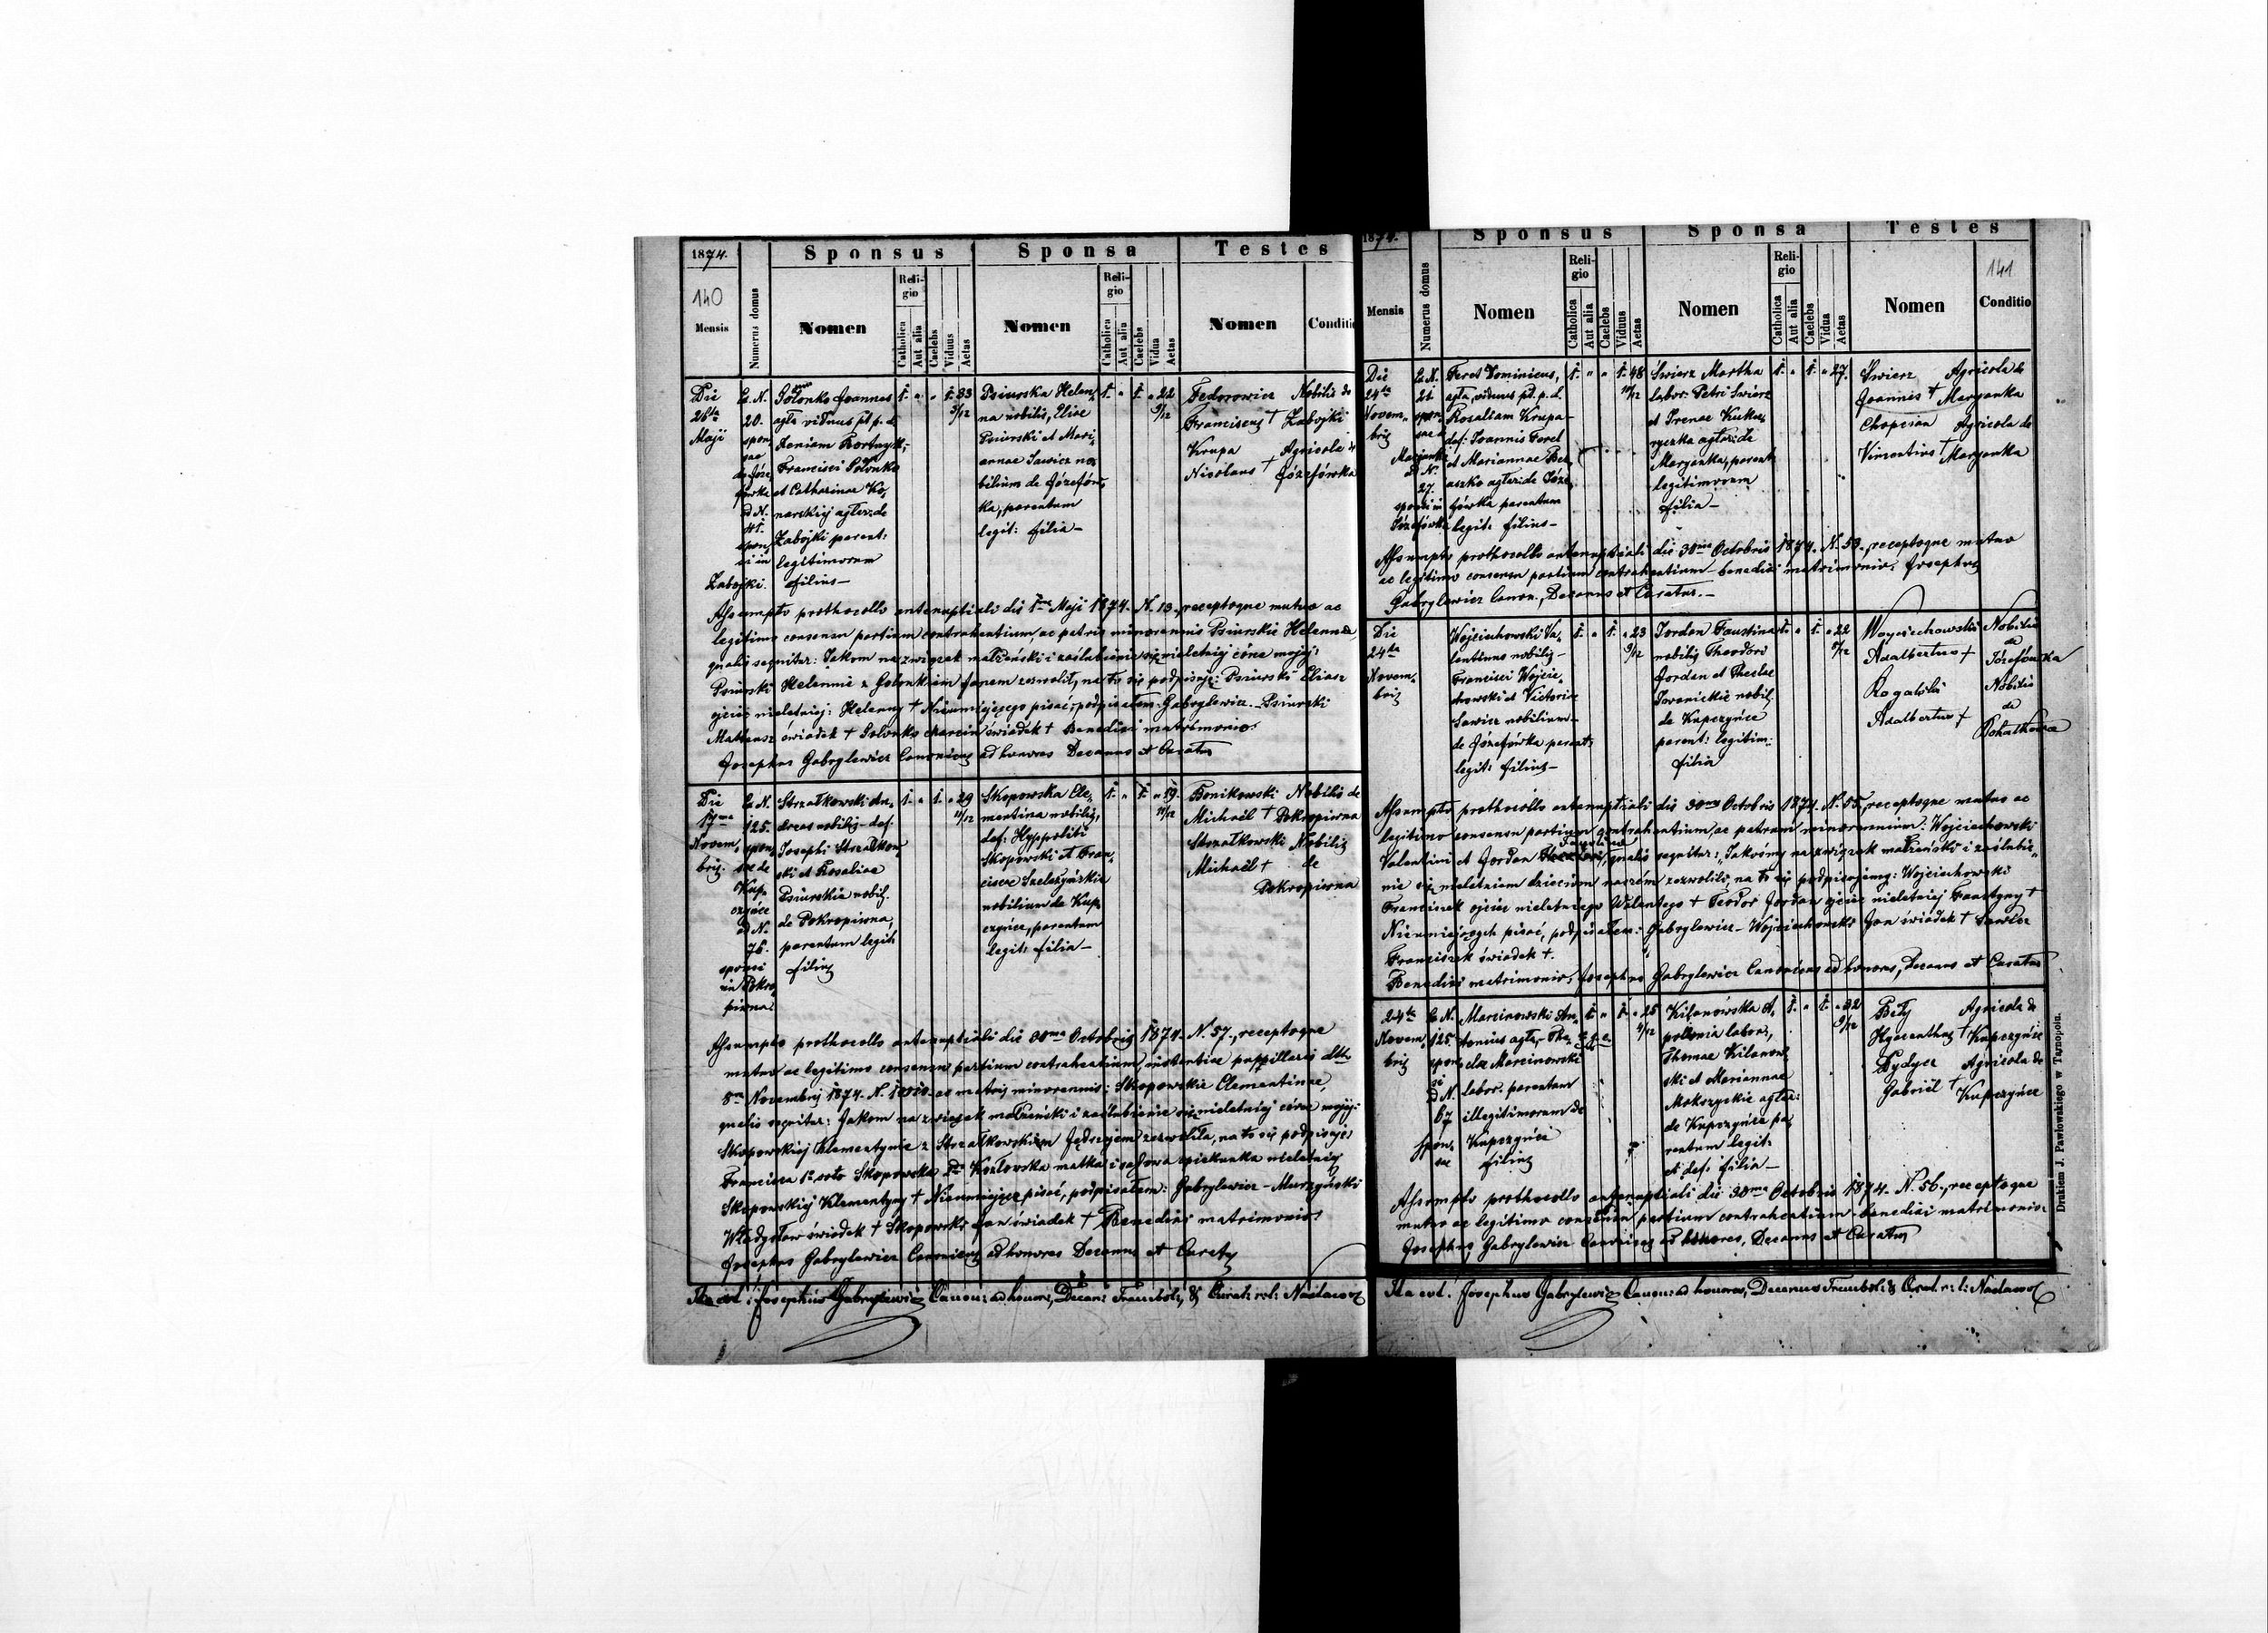 1874.
140
Mensis
Numerus domus
Sponsus
Nomen
Reli-
gio
Catholica
Aut alia
Caelebs
Viduus
Aetas
Sponsa
Nomen
Reli-
gio
Catholica
Aut alia
Caelebs
Vidua
Aetas
Testes
Nomen
Conditio
Die
Maji
Ex N.
20.
spon
sae
de Józe,
fówka
ad N.
41.
spon,
si in
Zabojki.
Solonko Joannes
agla viduus pt p. d.
Francisci Solonko
et Catharinae Ko,
narskij aglar: de
Zabojki parent:
legitimorum
filius—
1. " " 1. 33
3/12
Psiurska Hele,
na nobilis, Eliae
Psiurski et Mari,
annae Sawicz no,
bilium de Józefów,
ka, parentum
legit: filia—
1. " 1. " 22
3/12
Fedorowicz Nobilis de
Franciscus † Zabojki
Krupa Agricola de
Nicolaus † Józefówka
Assumpto prothocollo antenuptiali die 1ma Maji 1874. N. 13., receptoque mutuo ac
legitimo consensu partium contrahentium, ac patris minorennis Psiurskie Helenae,
qualis sequitur: Jakom na związek małżeński i zaślubienie się nieletniej córce mojej:
Psiurski Helennie z Solonkiem Janem zezwolił, na to się podpisuję: Psiurski Eliasz
ojciec nieletniej: Helenny † Nieumiejącego pisać, podpisałem: Gabrylewicz. — Psiurski
Mateusz świadek † Solonko Marcin świadek † Benedixi matrimonio:
Josephus Gabrylewicz Canonicus ad honores Decanus et Curatus
Die
17ma
Novem,
bris.
Ex N.
125.
spon,
sae de
Kup,
czyńce
ad N.
76.
sponsi
in Pokro,
piwna.
Strzałkowski An,
dreas nobilis def.
Josephi Strzałkow,
ski et Rosaliae
Psiurskie nobil.
de Pokropiwna,
parentum legit:
filius
1. " 1. " 29
11/12
Skopowska Cle,
mentina nobilis,
def: Hyppoliti
Skopowski et Fran,
ciscae Szeleżyńskie
nobilium de Kup,
czyńce, parentum
legit: filia—
1. " 1. " 19.
11/12
Bonikowski Nobilis de
Michaël † Pokropiwna
Strzałkowski Nobilis
Michaël † de
Pokropiwna
Assumpto prothocollo antenuptiali die 30ma Octobris 1874. N. 57., receptoque
mutuo ac legitimo consensu partium contrahentium, instantiae puppillaris
8va Novembris 1874. N. 10010. ac matris minorennis: Skopowskie Clementinae,
qualis sequitur: Jakom na związek małżeński i zaślubienie się nieletniej córce mojej:
Skopowskiej Klementynie z Strzałkowskim Jędrzejem zezwoliła, na to się podpisuję:
Francisca 1o voto Skopowska 2do Kozłowska matka i sądowa opiekunka nieletniej
Skopowskiej Klementyny † Nieumiejącej pisać, podpisałem: Gabrylewicz — Murzyński
Władysław świadek † Skopowski Jan świadek † Benedixi matrimonio:
Josephus Gabrylewicz Canonicus ad honores Decanus et Curatus
Ita est: Josephus Gabrylewicz Canon: ad honor:, Decan: Trembol:, & Curat: r. l: Nastasov
1874.
Mensis
Numerus domus
Sponsus
Nomen
Reli-
gio
Catholica
Aut alia
Caelebs
Viduus
Aetas
Sponsa
Nomen
Reli-
gio
Catholica
Aut alia
Caelebs
Vidua
Aetas
Testes
Nomen
141.
Conditio
Die
24ta
Novem,
bris
Ex N.
21.
spon,
sae
Maryanka
ad N.
27.
sponsi in
Józefówka
Feret Dominicus,
agla, viduus pt. p. d.
Rosaliam Krupa—
def: Joannis Feret
et Mariannae
aglar: de Józe,
fówka parentum
legit: filius—
1. " " 1. 48
Świerz Martha
labor: Petri Świerz
et Irenae
aglar: de
Maryanka, parent:
legitimorum
filia—
1. " 1. " 27.
Świerz Agricola de
Joannes † Maryanka
Agricola de
Vincentius † Maryanka
Assumpto prothocollo antenuptiali die 30ma Octobris 1874. N. 53., receptoque mutuo
ac legitimo consensu partium contrahentium — benedixi matrimonio: Josephus
Gabrylewicz Canon., Decanus et Curatus. —
Die
24ta
Novem,
bris
Wojciechowski Va,
lentinus nobilis—
Francisci Wojcie,
chowski et Victoriae
Sawicz nobilium—
de Józefówka parent:
legit: filius—
1. " 1. " 23
9/12
Jordan Faustina
nobilis Theodori
Jordan et Theclae
nobil:
de Kupczyńce
parent: legitim:
filia
1. " 1. " 22
Woyciechowski Nobilis
Adalbertus † de
Józefówka
Rogalski Nobilis
Adalbertus † de
Assumpto prothocollo antenuptiali die 30ma Octobris 1874. N. 55, receptoque mutuo ac
legitimo consensu partium contrahentium ac patrum minorennium: Wojciechowski
Valentini et Jordan Faustinae, qualis sequitur: "Jakośmy na związek małżeński i zaślubie,
nie się nieletniem dzieciom naszém zezwolili, na to się podpisujemy: Wojciechowski
Franciszek ojciec nieletniego Walentego † Teodor Jordan ojciec nieletniej Faustyny †
Nieumiejących pisać, podpisałem: Gabrylewicz — Wojciechowski Jan świadek † Sawicz
Franciszek świadek †.
Benedixi matrimonio: Josephus Gabrylewicz Canonicus ad honores, Decanus et Curatus
24ta
Novem,
bris
Ex N.
125.
spon,
si
ad N.
67
spon,
sae
Marcinowski An,
tonius agla, The,
clae Marcinowski
labor. parentum
illegitimorum de
Kupczyńce
filius
1. " 1. " 25
Kilanowska A,
polonia labor.,
Thomae Kilanow,
ski et Mariannae
Mokrzyckie aglar:
de Kupczyńce pa,
rentum legit:
et def: filia—
1. " 1. " 32
9/12
Biły Agricola de
Hyacinthus † Kupczyńce
Dydycz Agricola de
Gabriël † Kupczyńce
Assumpto prothocollo antenuptiali die 30ma Octobris 1874. N. 56., receptoque
mutuo ac legitimo consensu partium contrahentium — benedixi matrimonio:
Josephus Gabrylewicz Canonicus ad honores, Decanus et Curatus
Ita est. Josephus Gabrylewicz Canon: ad honores, Decanus Trembol: & Curat. r. l: Nastasov
Drukiem J. Pawłowskiego w Tarnopolu.